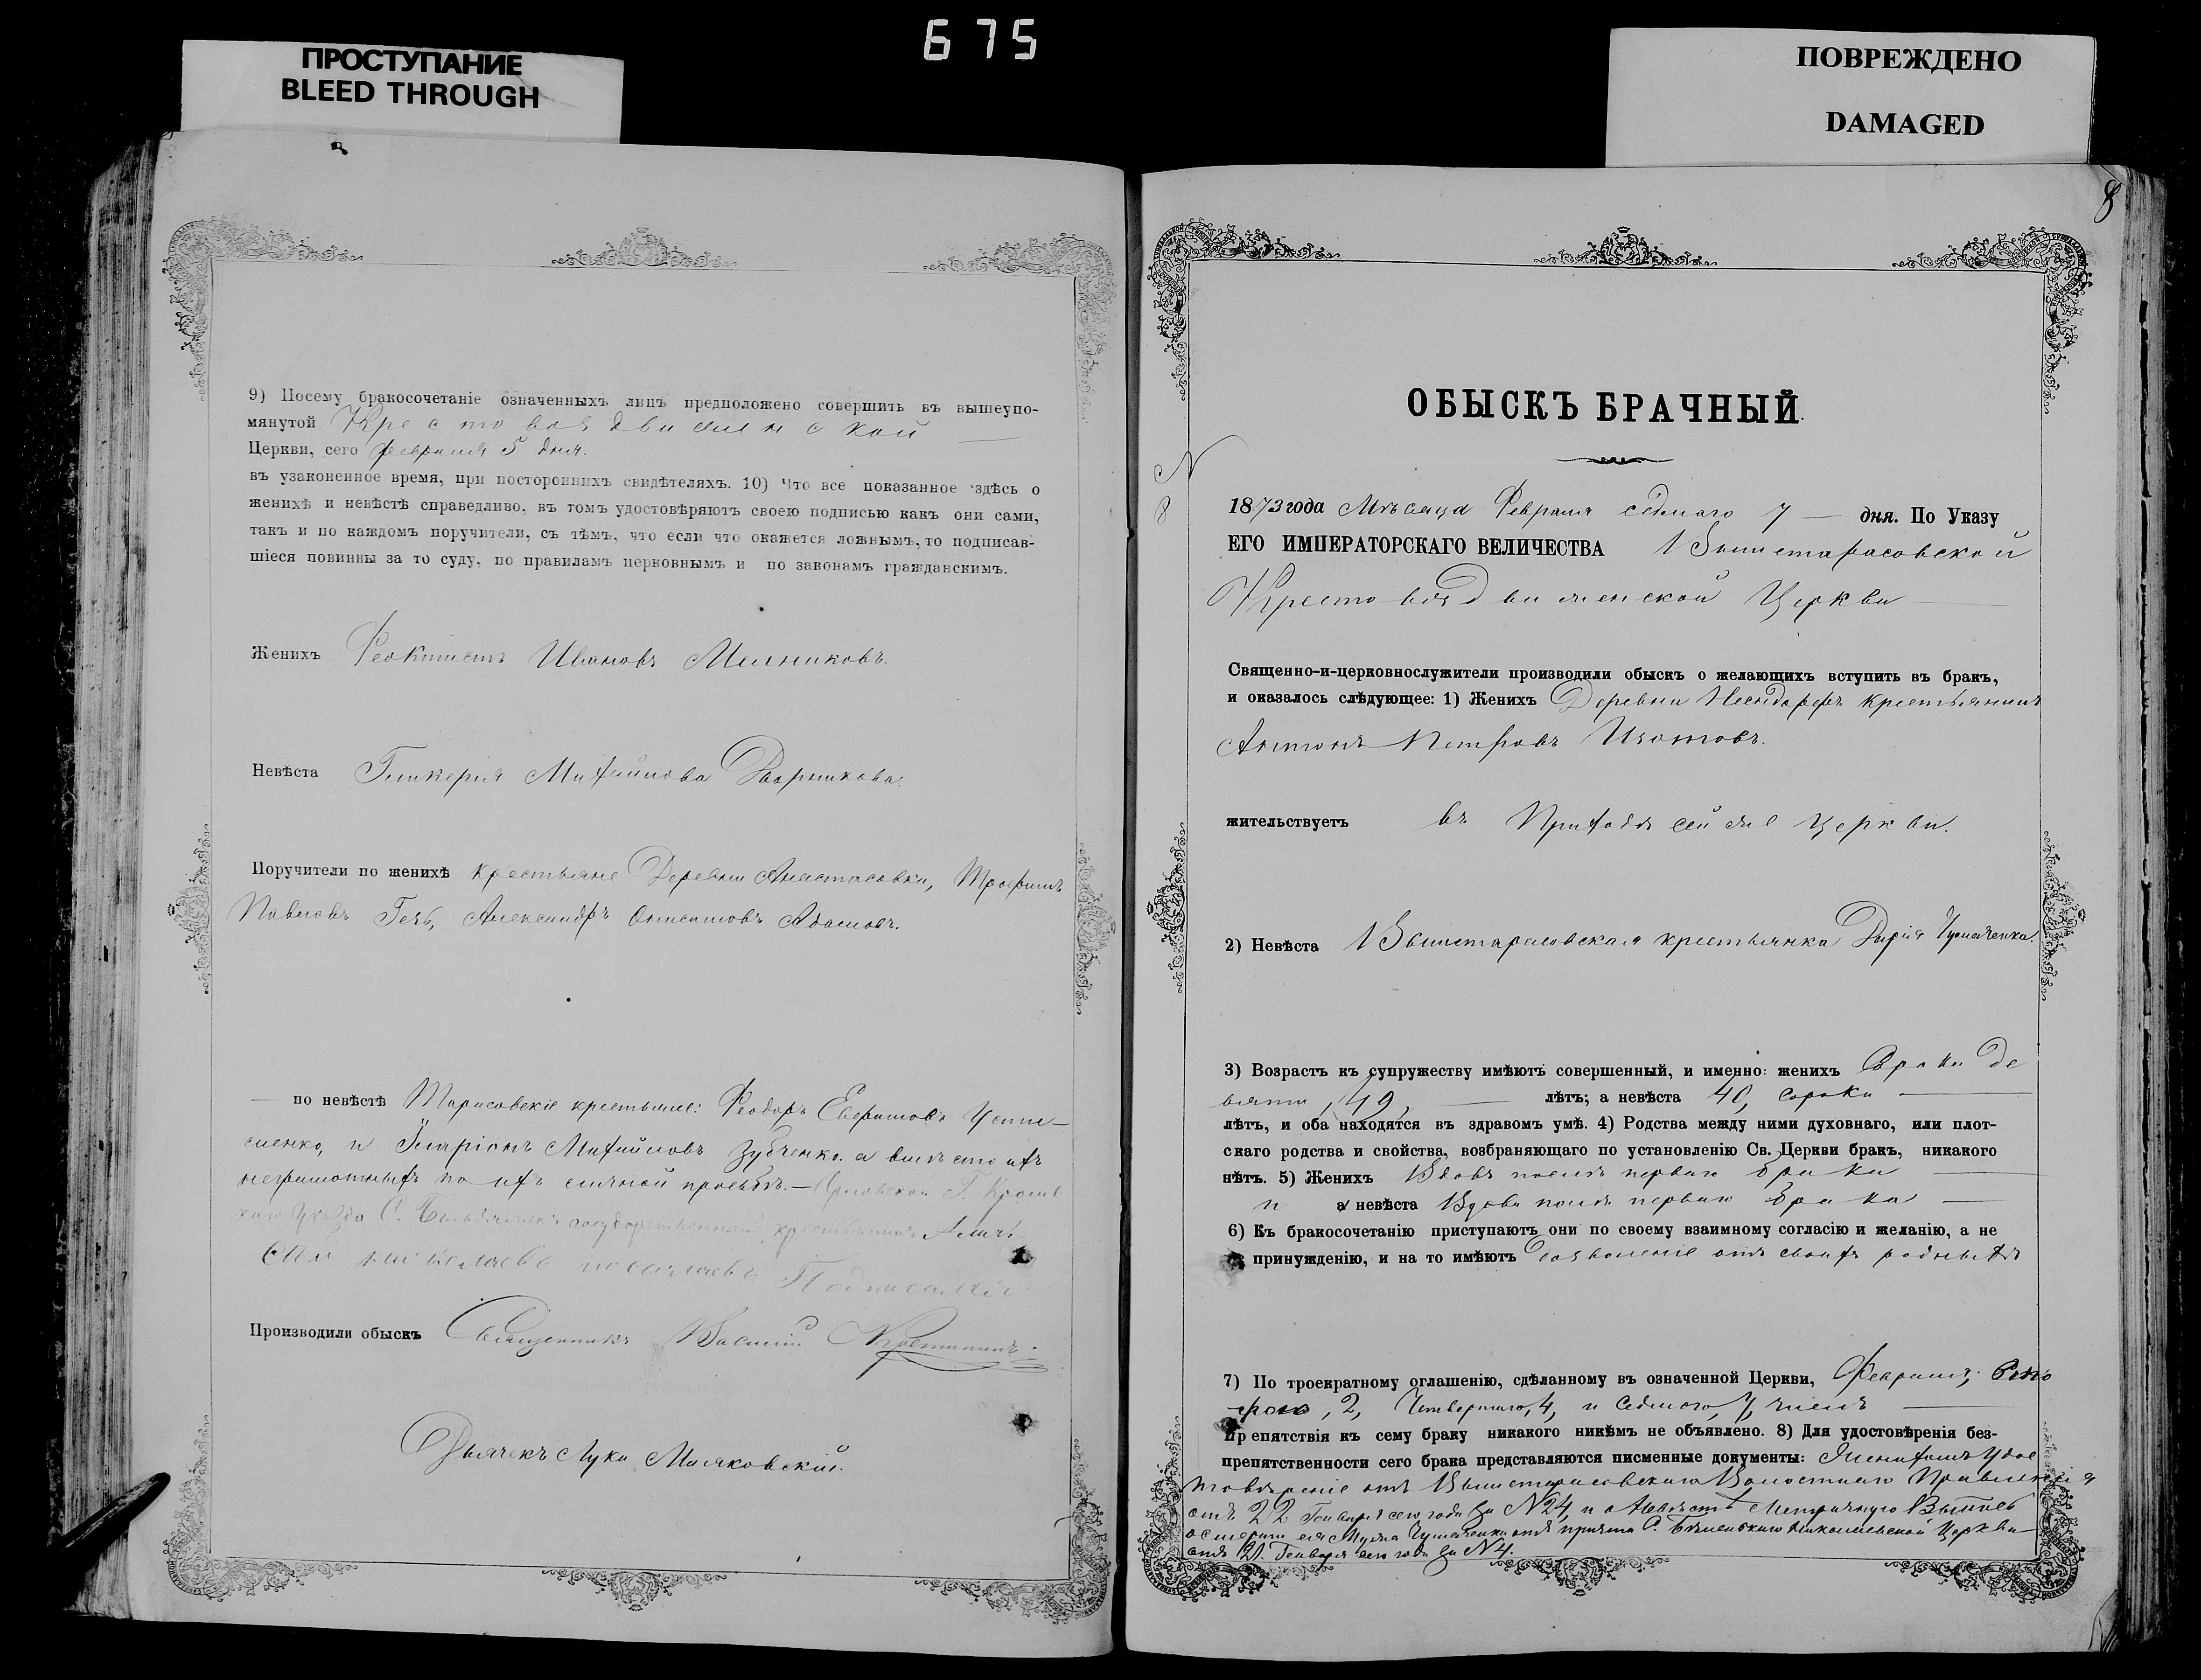 675
ПРОСТУПАНИЕ
BLEED THROUGH
ПОВРЕЖДЕНО
DAMAGED
9) Посему бракосочетаніе означенныхъ лицъ предположено совершить въ вышеупо-
мянутой Крестовоздвиженской
Церкви, сего февраля 5 дня.
въ узаконенное время, при постороннихъ свидѣтеляхъ. 10) Что все показанное здѣсь о
женихѣ и невѣстѣ справедливо, въ томъ удостовѣряютъ своею подписью какъ они сами,
такъ и по каждомъ поручители, съ тѣмъ, что если что окажется ложнымъ, то подписав-
шіеся повинны за то суду, по правиламъ церковнымъ и по законамъ гражданскимъ.
Женихъ Феоктистъ Ивановъ Мелниковъ.
Невѣста Гликерия Михайлова Дворникова.
Поручители по женихѣ крестьяне Деревни Анастасовки, Трофимъ
Павловъ Александръ Онисимовъ
по невѣстѣ Тарасовскіе крестьяне: Феодоръ Евфимовъ Усти-
менко, и Иларіонъ Михайловъ Зубченко. а вместо ихъ
неграмотныхъ по ихъ личной прозьбѣ.—Орловской Г. Кром
уезда С. государственный крестьянинъ
николаевъ
Производили обыскъ Священникъ Василій
Дьячекъ Лука Маляковскій.
8
ОБЫСКЪ БРАЧНЫЙ.
N
8
1873 года Мѣсяца Февраля седмаго 7 — дня. По Указу
ЕГО ИМПЕРАТОРСКАГО ВЕЛИЧЕСТВА Вышетарасовской
Крестовоздвиженской Церкви
Священно-и-церковнослужители производили обыскъ о желающихъ вступить въ бракъ,
и оказалось слѣдующее: 1) Женихъ Деревни крестьянинъ
Антонъ Петровъ Изотовъ.
жительствуетъ въ Приходѣ сей же церкви.
2) Невѣста Вышетарасовская крестьянка Дарія
3) Возрастъ къ супружеству имѣютъ совершенный, и именно: женихъ Сорока де
вяти, 49, лѣтъ; а невѣста 40, сорока
лѣтъ, и оба находятся въ здравомъ умѣ. 4) Родства между ними духовнаго, или плот-
скаго родства и свойства, возбраняющаго по установленію Св. Церкви бракъ, никакого
нѣтъ. 5) Женихъ Вдовъ послѣ перваго брака
и а невѣста Вдова послѣ перваго брака
6) Къ бракосочетанію приступаютъ они по своему взаимному согласію и желанію, а не
принужденію, и на то имѣютъ Дозволеніе отъ своихъ родныхъ
7) По троекратному оглашенію, сдѣланному въ означенной Церкви, Февраля,
2, Четвертаго, 4, и Седмаго, 7, числъ
препятствія къ сему браку никакого никѣмъ не объявлено. 8) Для удостовѣренія без-
препятственности сего брака представляются писменные документы: Женихомъ удос
товѣреніе отъ Вышетарасовскаго Волостнаго Правленія
отъ 22 Генваря сего года за N 24, и о Невѣстѣ Метричную Выпись
о смерти ея Мужа отъ причта С. Николаевской Церкви
отъ 21. Генваря сего года за N 4.